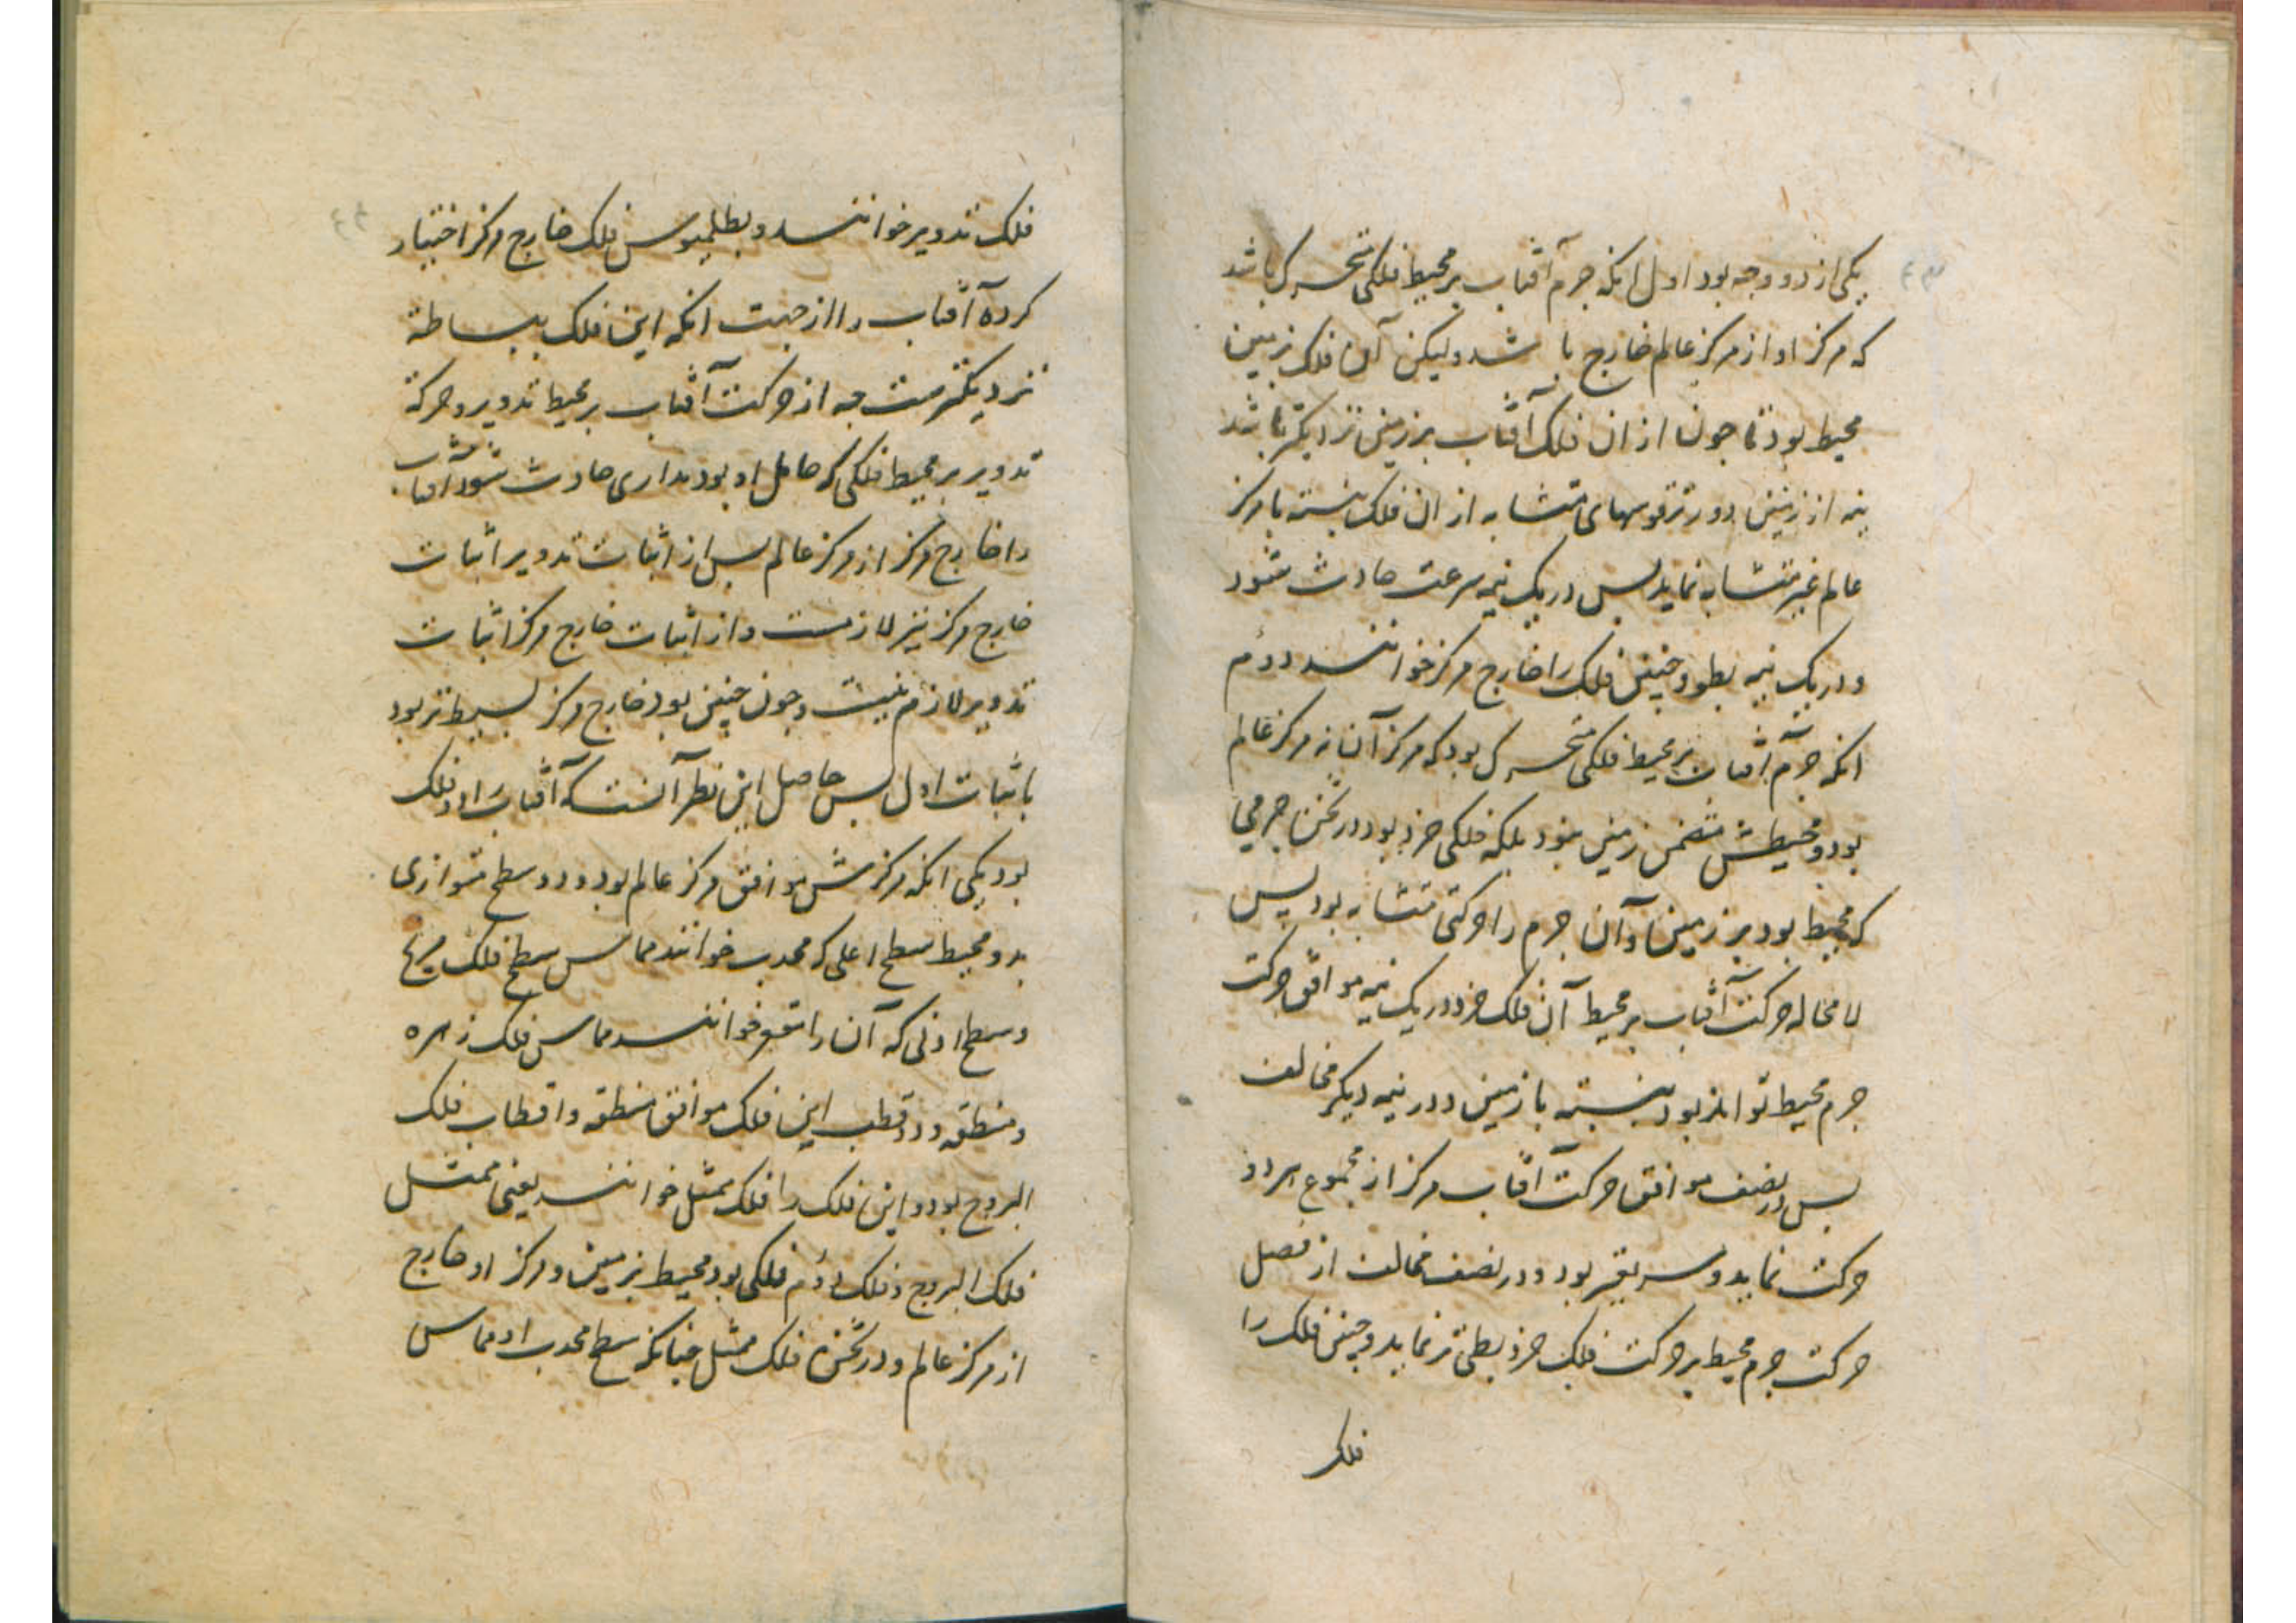 یکی از دو وجه بود اول انکه جرم آفتاب بر محیط فلکی متحرک باشد
که مرکز او از مرکز عالم خارج باشد ولیکن آن فلک بزمین
محیط بود تا جون از ان فلک آفتاب بزمین نزدیکتر باشد
نیمه از زمین دورتر قوسهای متشابه از ان فلک بنسبته با مرکز
عالم غیر متشابه نماید بس در یک نیمه سرعت حادث شود
و در یک نیمه بطو و جنین فلک را خارج مرکز خوانند دوم
انکه جرم آفتاب بر محیط فلکی متحرک بود که مرکز آن نه مرکز عالم
بود و محیطش متضمن زمین نبود بلکه فلکی خرد بود در ثخن جرمی
که محیط بود بر زمین و آن جرم را حرکتی متشابه بود بس
لا محاله حرکت آفتاب بر محیط آن فلک خرد در یک نیمه موافق حرکت
جرم محیط تواند بود بنسبته با زمین و در نیمه دیکر مخالف
بس در نصف موافق حرکت آفتاب مرکز از مجموع هر دو
حرکت نماید و سریعتر بود و در نصف مخالف از فصل
حرکت جرم محیط بر حرکت فلک خرد بطی تر نماید و جنین فلک را
فلک
فلک تدویر خوانند و بطلمیوس فلک خارج مرکز اختیار
کرده آفتاب را از جهت انکه این فلک ببساطة
نزدیکترست جه از حرکت آفتاب بر محیط تدویر و حرکة
تدویر بر محیط فلکی که حامل او بود مداری حادث شود آفتاب
را خارج مرکز از مرکز عالم بس از اثبات تدویر اثبات
خارج مرکز نیز لازمست و از اثبات خارج مرکز اثبات
تدویر لازم نیست و جون جنین بود خارج مرکز بسیط تر بود
باثبات اول بس حاصل این نظر آنست که آفتاب را دو فلک
بود یکی انکه مرکزش موافق مرکز عالم بود و دو سطح متوازی
بدو محیط سطح اعلی که محدب خوانند مماس سطح فلک مریخ
و سطح ادنی که آن را مقعر خوانند مماس فلک زهره
و منطقه و دو قطب این فلک موافق منطقه و اقطاب فلک
البروج بود و این فلک را فلک ممثل خوانند یعنی ممثل
فلک البروج و فلک دوم فلکی بود محیط بزمین و مرکز او خارج
از مرکز عالم و در ثخن فلک ممثل جنانکه سطح محدب او مماس